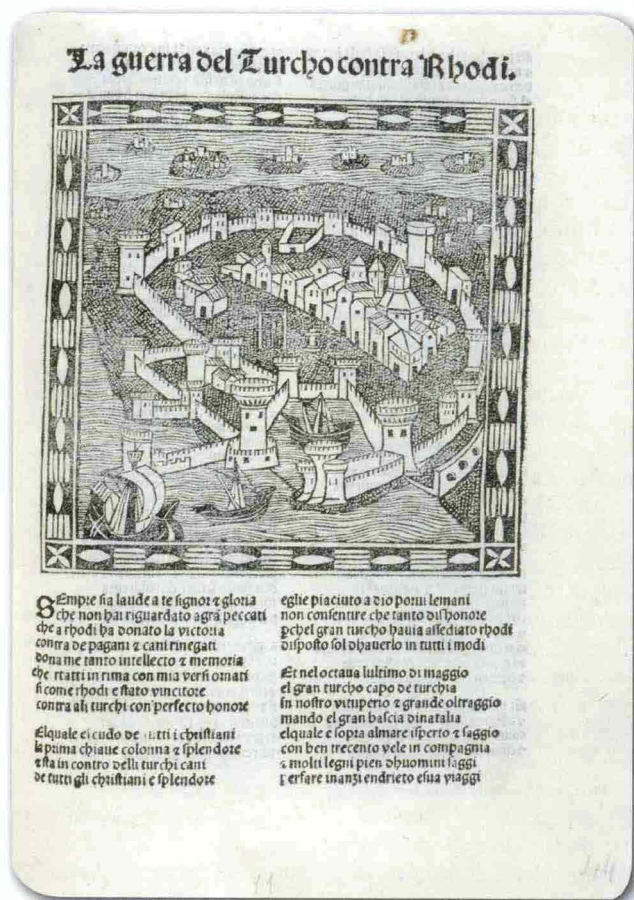 La guerra del Turcho contra Rhodi.
SEmpre sia laude a te signor ⁊ gloria
che non hai riguardato a gra peccati
che a rhodi ha donato la victoria
contra de pagani ⁊ cani rinegati
dona me tanto intellecto ⁊ memoria
che tratti in rima con mia versi ornati
si come rhodi e stato vincitore
contra ali turchi con perfecto honore
Elquale e scudo de tutti i christiani
la prima chiaue colonna ⁊ splendore
⁊ sta in contro delli turchi cani
de tutti gli christiani e splendore
eglie piaciuto a dio porui lemani
non consentire che tanto dishonore
pchel gran turcho hauia assediato rhodi
disposto sol dhauerlo in tutti i modi
Et nel octaua lultimo di maggio
el gran turcho capo de turchia
in nostro vituperio ⁊ grande oltraggio
mando el gran bascia dinatalia
elquale e sopra almare isperto ⁊ saggio
con ben trecento vele in compagnia
⁊ molti legni pien dhuomini saggi
per fare inanzi endrieto e sua viaggi